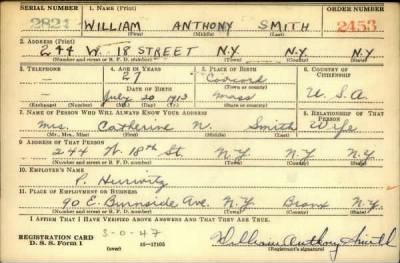 SERIAL NUMBER 1. NAME (Print) ORDER NUMBER
2824 WILLIAM ANTHONY SMITH 2453
(First) (Middle) (Last)
2. ADDRESS (Print)
244 W. 18 STREET N.Y. N.Y. N.Y.
(Number and street or R. F. D. number) (Town) (County) (State)
3. TELEPHONE 4. AGE IN YEARS 5. PLACE OF BIRTH 6. COUNTRY OF CITIZENSHIP
27
DATE OF BIRTH (Town or county)
July 20 1913 Mass U.S.A.
(Exchange) (Number) (Mo.) (Day) (Yr.) (State or country)
7. NAME OF PERSON WHO WILL ALWAYS KNOW YOUR ADDRESS 8. RELATIONSHIP OF THAT PERSON
Mrs. Catherine N. Smith Wife
(Mr., Mrs., Miss) (First) (Middle) (Last)
9. ADDRESS OF THAT PERSON
244 W. 18th St. N.Y. N.Y. N.Y.
(Number and street or R. F. D. number) (Town) (County) (State)
10. EMPLOYER'S NAME
P. Hurwitz
11. PLACE OF EMPLOYMENT OR BUSINESS
90 E. Burnside Ave. N.Y. Bronx N.Y.
(Number and street or R. F. D. number) (Town) (County) (State)
I AFFIRM THAT I HAVE VERIFIED ABOVE ANSWERS AND THAT THEY ARE TRUE.
REGISTRATION CARD 3-0-47
D. S. S. Form 1 (over) 16-17105 William Anthony Smith
(Registrant's signature)